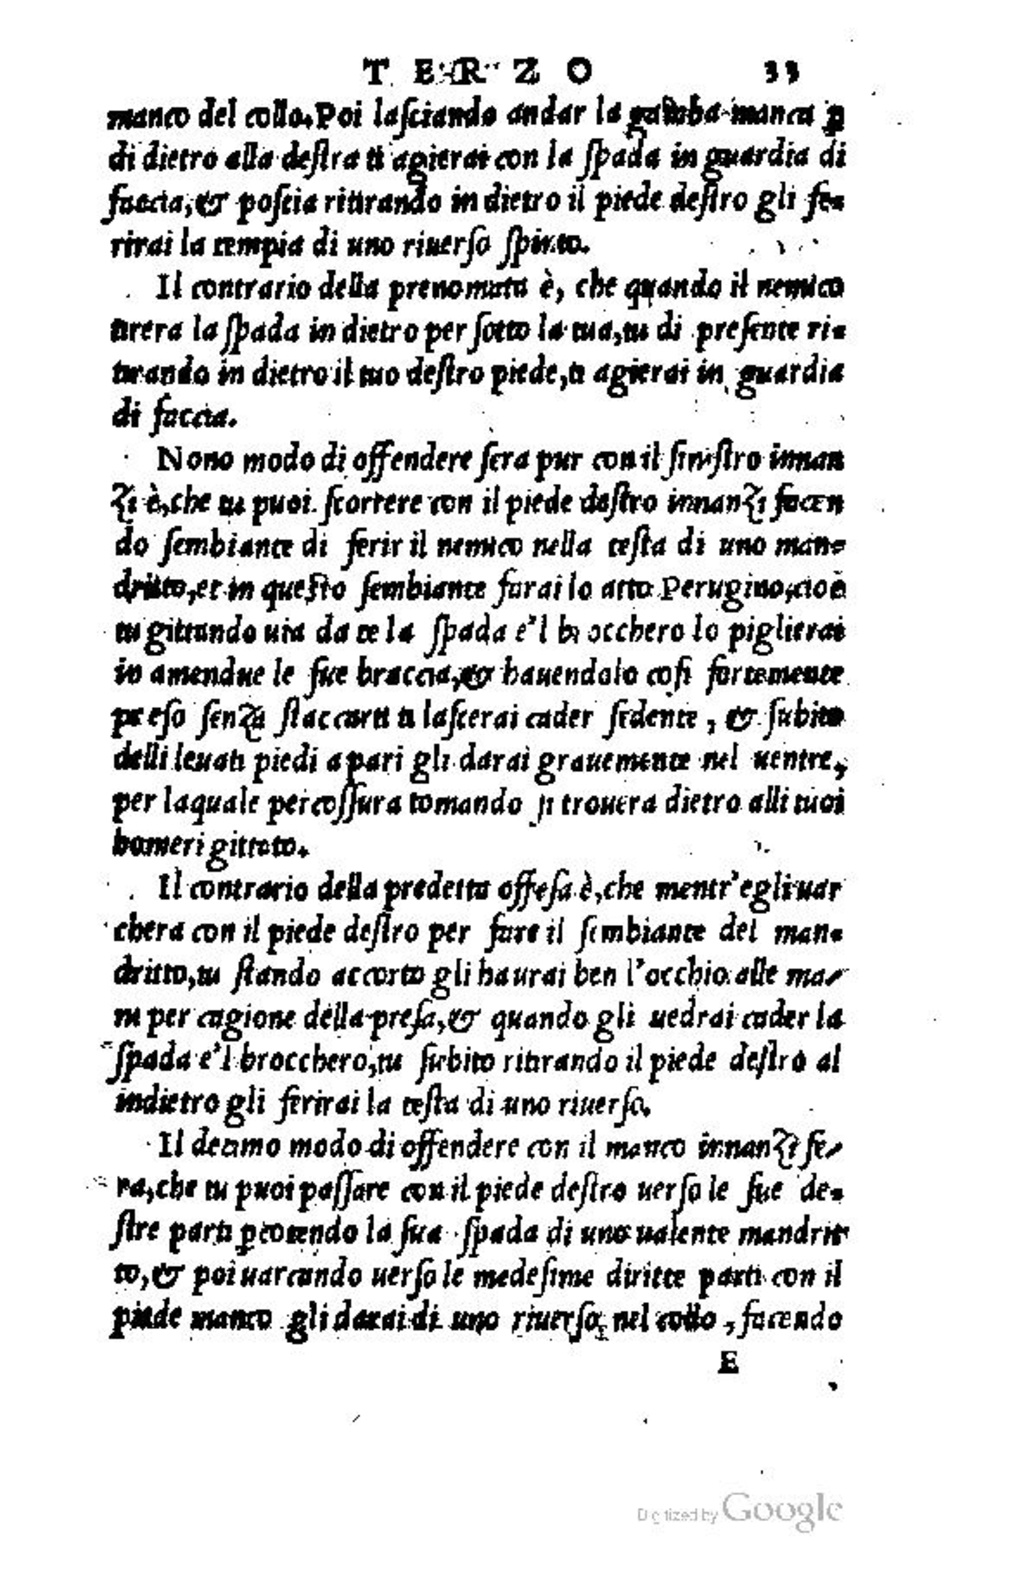 TERZO 33
manco del collo. Poi laſciando andar la gamba manca ꝑ
di dietro alla deſtra ti agierai con la ſpada in guardia di
faccia, & poſcia ritirando in dietro il piede deſtro gli fe-
rirai la tempia di uno riuerſo ſpinto.
Il contrario della prenomata è, che quando il nemico
tirera la ſpada in dietro per ſotto la tua, tu di preſente ri-
tirando in dietro il tuo deſtro piede, ti agierai in guardia
di faccia.
Nono modo di offendere ſera pur con il ſiniſtro innan
zi è, che tu puoi ſcorrere con il piede deſtro innanzi facen
do ſembiante di ferir il nemico nella teſta di uno man-
dritto, et in queſto ſembiante farai lo atto Perugino, cioè
tu gittando uia da te la ſpada e'l brocchero lo piglierai
in amendue le ſue braccia, & hauendolo coſi fortemente
preſo ſenza ſtaccarti ti laſcerai cader ſedente, & ſubito
delli leuati piedi a pari gli darai grauemente nel uentre,
per laquale percoſſura tomando ſi trouera dietro alli tuoi
homeri gittato.
Il contrario della predetta offeſa è, che mentr'egli uar
chera con il piede deſtro per fare il ſembiante del man-
dritto, tu ſtando accorto gli haurai ben l'occhio alle ma-
ni per cagione della preſa, & quando gli uedrai cader la
ſpada e'l brocchero, tu ſubito ritirando il piede deſtro al
indietro gli ferirai la teſta di uno riuerſo.
Il decimo modo di offendere con il manco innanzi ſe-
ra, che tu puoi paſſare con il piede deſtro uerſo le ſue de-
ſtre parti ꝑcotendo la ſua ſpada di uno ualente mandrit
to, & poi uarcando uerſo le medeſime diritte parti con il
piede manco gli darai di uno riuerſo nel collo, facendo
E
Digitized by Google